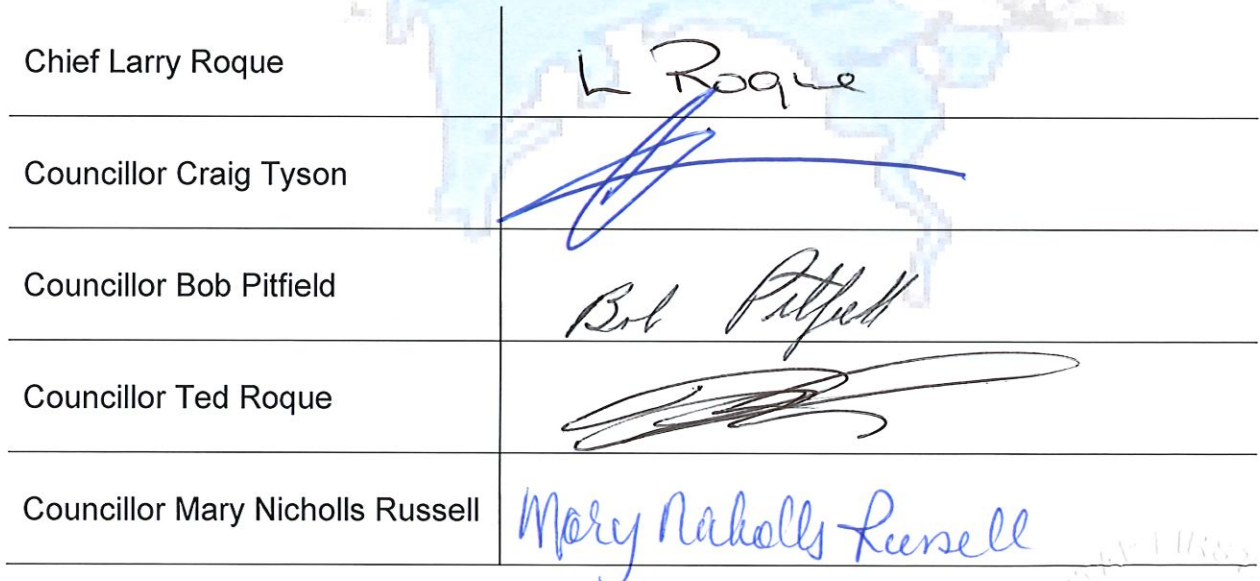 Chief Larry Roque
L Roque
Councillor Craig Tyson
Councillor Bob Pitfield
Bob Pitfield
Councillor Ted Roque
Councillor Mary Nicholls Russell
Mary Nicholls Russell